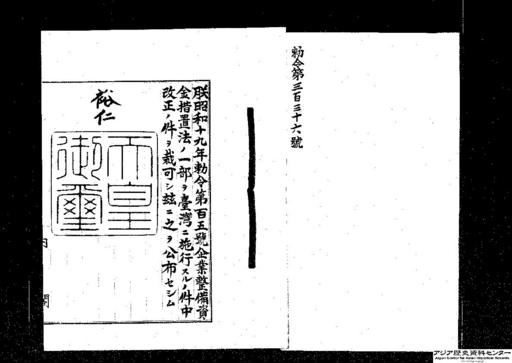 勅令第三百三十六號
朕昭和十九年勅令第百五號企業整備資
金措置法ノ一部ヲ臺灣ニ施行スルノ件中
改正ノ件ヲ裁可シ茲ニ之ヲ公布セシム
裕仁
天皇
御璽
内
閣
アジア歴史資料センター
Japan Center for Asian Historical Records